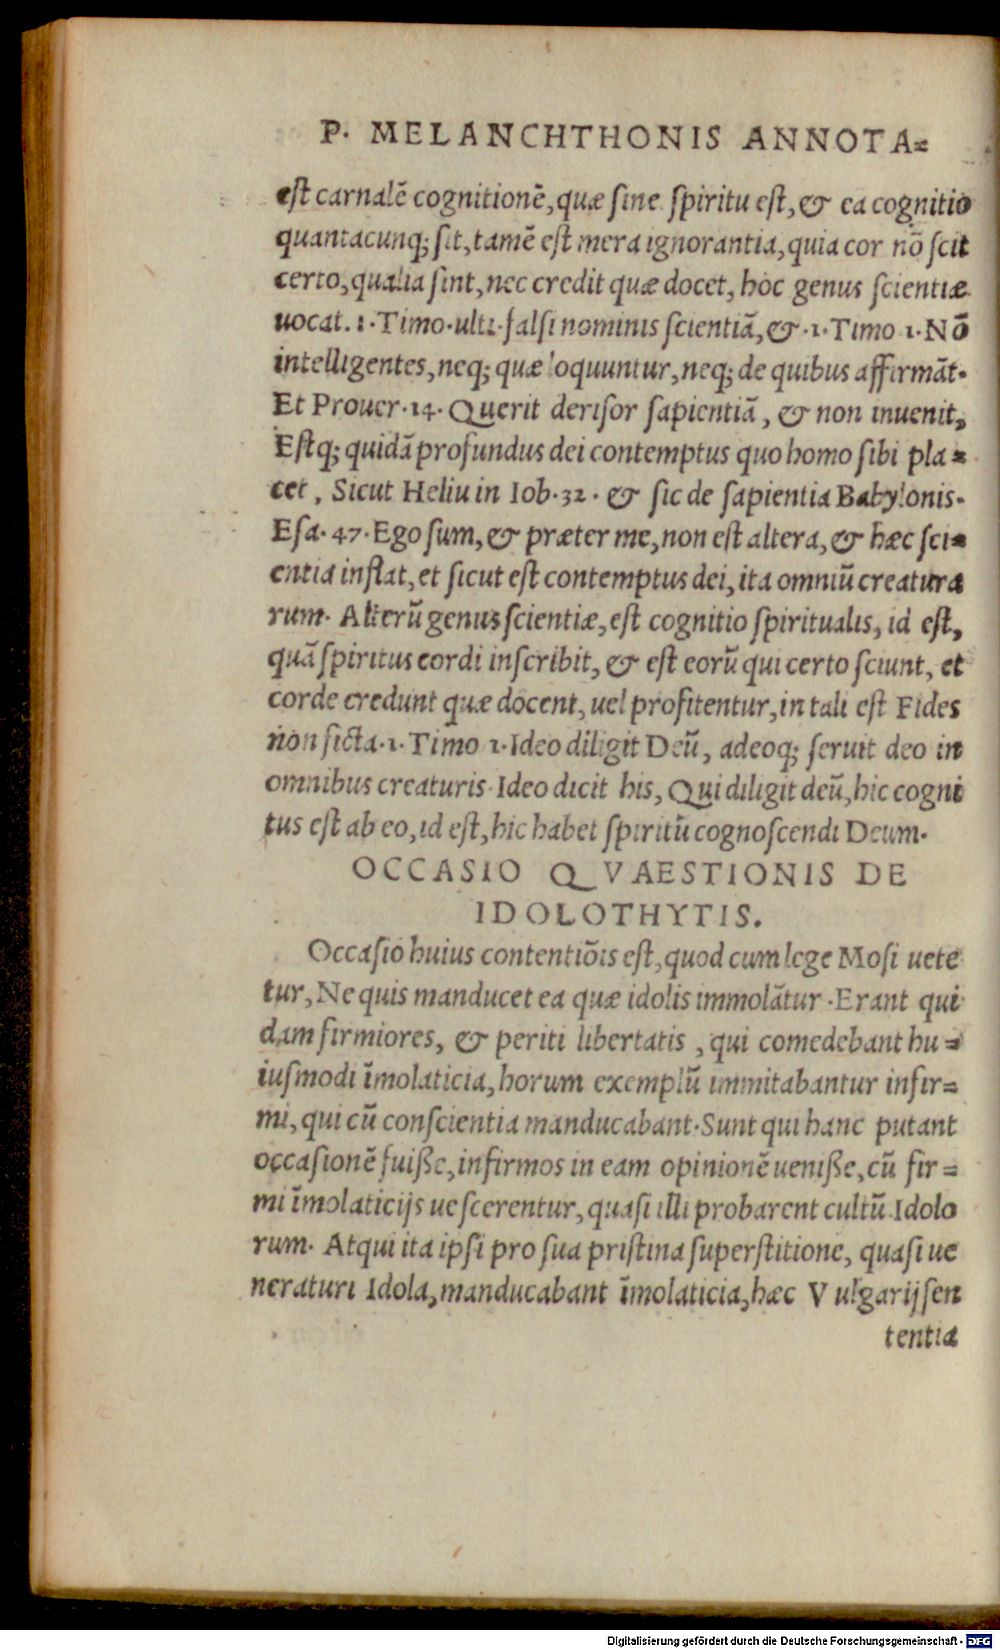 P. MELANCHTHONIS ANNOTA=
est carnalē cognitionē, quæ sine spiritu est, & ea cognitio
quantacunq; sit, tamē est mera ignorantia, quia cor nō scit
certo, qualia sint, nec credit quæ docet, hoc genus scientiæ
uocat. 1. Timo. ulti. falsi nominis scientiā, & .1. Timo 1. Nō
intelligentes, neq; quæ loquuntur, neq; de quibus affirmāt.
Et Prouer. 14. Querit derisor sapientiā, & non inuenit,
Estq; quidā profundus dei contemptus quo homo sibi pla=
cet, Sicut Heliu in Iob. 32. & sic de sapientia Babylonis.
Esa. 47. Ego sum, & præter me, non est altera, & hæc sci=
entia inflat, et sicut est contemptus dei, ita omniū creatura
rum. Alterū genus scientiæ, est cognitio spiritualis, id est,
quā spiritus cordi inscribit, & est eorū qui certo sciunt, et
corde credunt quæ docent, uel profitentur, in tali est Fides
non ficta. 1. Timo 1. Ideo diligit Deū, adeoq; seruit deo in
omnibus creaturis. Ideo dicit his, Qui diligit deū, hic cogni
tus est ab eo, id est, hic habet spiritū cognoscendi Deum.
OCCASIO QVAESTIONIS DE
IDOLOTHYTIS.
Occasio huius contentiōis est, quod cum lege Mosi uete
tur, Ne quis manducet ea quæ idolis immolātur. Erant qui
dam firmiores, & periti libertatis, qui comedebant hu=
iusmodi īmolaticia, horum exemplū immitabantur infir=
mi, qui cū conscientia manducabant. Sunt qui hanc putant
occasionē fuiße, infirmos in eam opinionē ueniße, cū fir=
mi īmolaticijs uescerentur, quasi illi probarent cultū Idolo
rum. Atqui ita ipsi pro sua pristina superstitione, quasi ue
neraturi Idola, manducabant īmolaticia, hæc Vulgarij sen
tentia
Digitalisierung gefördert durch die Deutsche Forschungsgemeinschaft - DFG